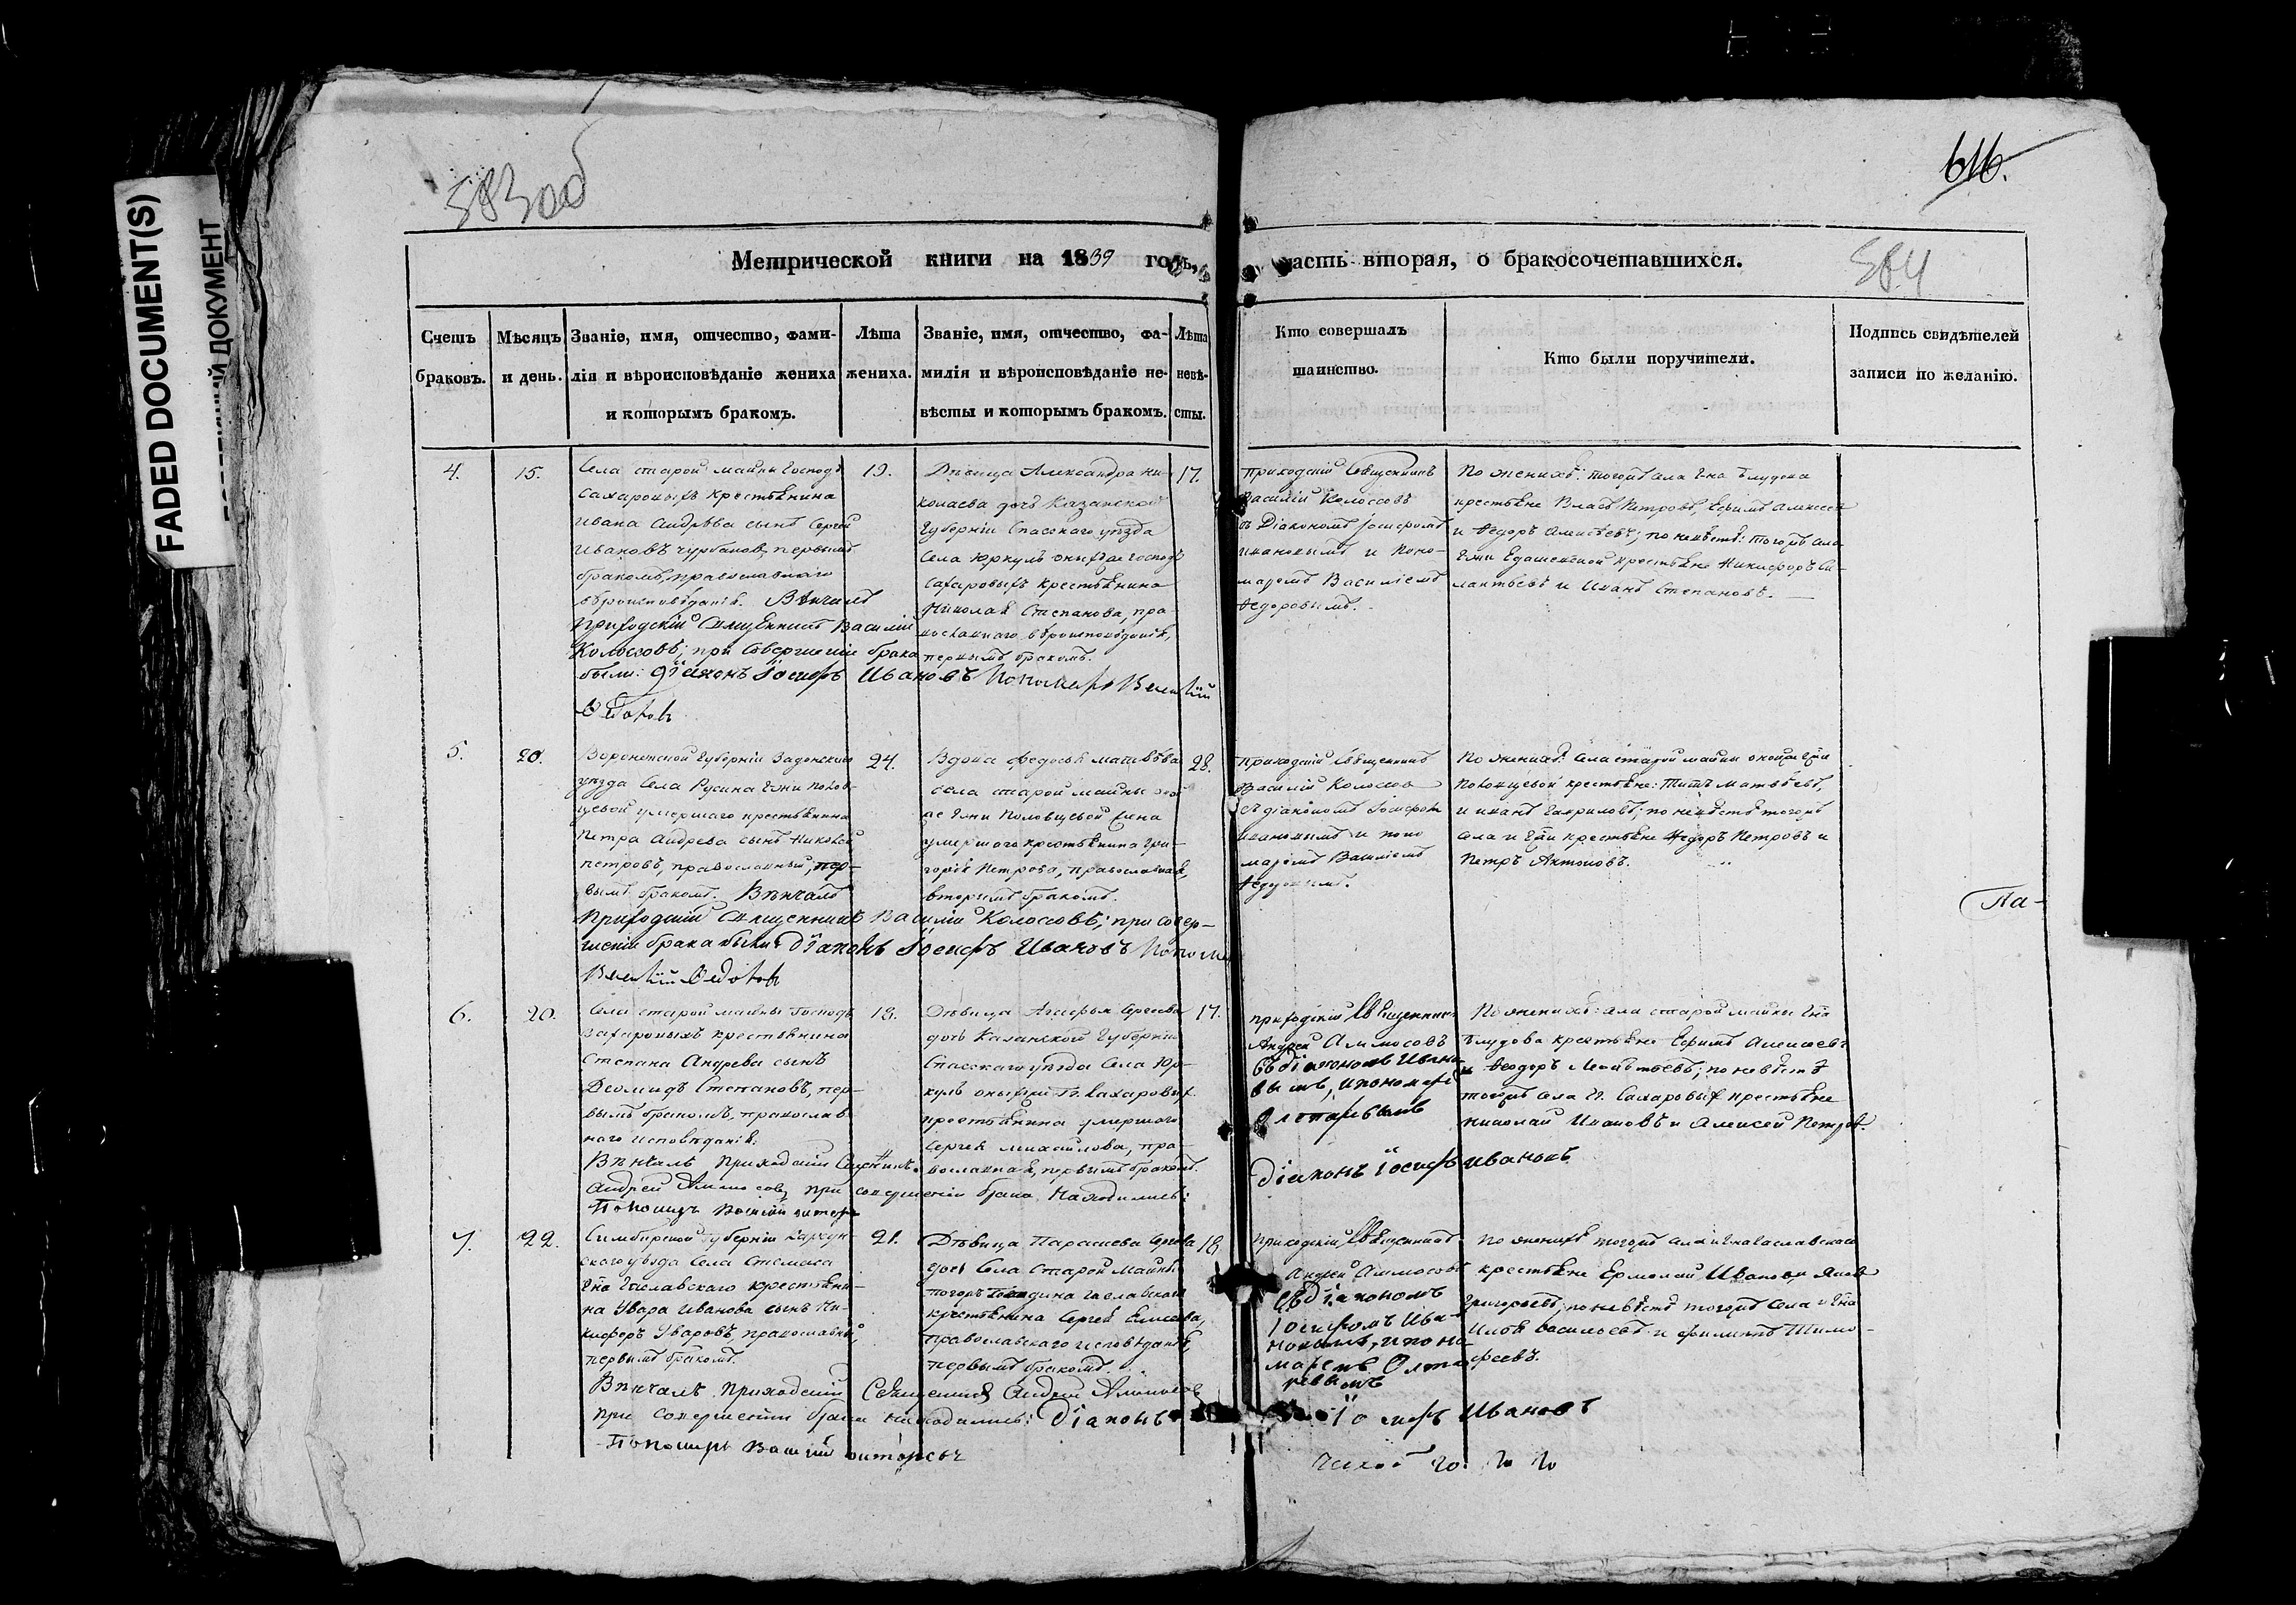 FADED DOCUMENT(S)
ДОКУМЕНТ
583 об
616.
584
Метрической книги на 1839 годъ,
часть вторая, о бракосочетавшихся.
Счетъ браковъ.
Мѣсяцъ и день.
Званіе, имя, отчество, фами-
лія и вѣроисповѣданіе жениха
и которымъ бракомъ.
Лѣта
жениха.
Званіе, имя, отчество, фа-
милія и вѣроисповѣданіе не-
вѣсты и которымъ бракомъ.
Лѣта
невѣ-
сты.
Кто совершалъ
таинство.
Кто были поручители.
Подпись свидѣтелей
записи по желанію.
4.
15.
Села старой майны Господъ
Сахаровыхъ крестьянина
Ивана Андрѣева сынъ Сергей
Ивановъ первымъ
бракомъ, православнаго
вѣроисповѣданія. Вѣнчалъ
Приходскій Священникъ Василій
Колоссовъ; при совершеніи брака
были: діаконъ Іосифъ Ивановъ Пономарь Василій
19.
Дѣвица Александра Ни-
колаева дочь Казанской
Губерніи Спасскаго уѣзда
Села Юркуль Господъ
Сахаровыхъ крестьянина
Николая Степанова, пра-
вославнаго вѣроисповѣданія,
первымъ бракомъ.
17.
Приходскій Священникъ
Василій Колоссовъ
съ Діакономъ Іосифомъ
Ивановымъ и Поно-
маремъ Василіемъ
Федоровымъ.
По женихѣ: тогожъ села Г-на Блудова
крестьяне Власъ Петровъ, Ефимъ Алексеевъ
и Федоръ; по невѣстѣ: тогожъ села
Г-жи крестьяне Никифоръ Си-
лантьевъ и Иванъ Степановъ.
5.
20.
Воронежской Губерніи Задонскаго
уѣзда Села Русина Г-жи Полов-
цевой умершаго крестьянина
Петра Андрева сынъ Николай
Петровъ, православный, пер-
вымъ бракомъ. Вѣнчалъ
Приходскій Священникъ Василій Колоссовъ; при совер-
шеніи брака были: діаконъ Іосифъ Ивановъ Пономарь
Василій
24.
Вдова Федосья Матвѣева
села старой майны
Г-жи Половцевой жена
умершаго крестьянина Гри-
горія Петрова, православная,
вторымъ бракомъ.
28.
Приходскій Священникъ
Василій Колоссовъ
съ діакономъ Іосифомъ
Ивановымъ и поно
маремъ Василіемъ
Федоровымъ.
По женихѣ: Села старой майны Г-жи
Половцевой крестьяне: Титъ Матвѣевъ,
и Иванъ Гавриловъ; по невѣстѣ тогожъ
села и Г-жи крестьяне Федоръ Петровъ и
Петръ Антоновъ.
Па-
6.
20.
Села старой майны Господъ
Сахаровыхъ крестьянина
Степана Андрева сынъ
Деомидъ Степановъ, пер-
вымъ бракомъ, православ-
наго исповѣданія.
Вѣнчалъ Приходскій Священникъ
Андрей Аммосовъ, при совершеніи брака находились:
Пономарь Василій
18.
Дѣвица Агафья Сергеева
дочь Казанской Губерніи
Спасскаго уѣзда Села Юр-
куль Гг. Сахаровыхъ
крестьянина умершаго
Сергея Михайлова, пра-
вославная, первымъ бракомъ.
17.
Приходскій Священникъ
Андрей Аммосовъ
съ діакономъ Ивано-
вымъ, и пономаремъ
діаконъ Іосифъ Ивановъ
По женихѣ: села старой майны Г-на
Блудова крестьяне Ефимъ Алексеевъ
и Федоръ; по невѣстѣ
тогожъ села Гг. Сахаровыхъ крестьяне
Николай Ивановъ и Алексей Петровъ.
7.
22.
Симбирской Губерніи Карсун-
скаго уѣзда Села Стемаса
Г-на крестьяни-
на Увара Иванова сынъ Ни-
кифоръ Уваровъ, православный,
первымъ бракомъ.
Вѣнчалъ Приходскій Священникъ Андрей Аммосовъ
при совершеніи брака находились: діаконъ
Іосифъ Ивановъ
Пономарь Василій
21.
Дѣвица Парасковья Сергеева
дочь Села Старой Майны
тогожъ Господина
крестьянина Сергея Елисеева,
православнаго исповѣданія,
первымъ бракомъ.
18.
Приходскій Священникъ
Андрей Аммосовъ
съ діакономъ
Іосифомъ Ива-
новымъ, и поно-
маремъ
По женихѣ тогожъ села и Г-на
крестьяне Ермолай Ивановъ и Яковъ
Григорьевъ, по невѣстѣ тогожъ села и Г-на
Илья Васильевъ и Филиппъ Тимо-
феевъ.